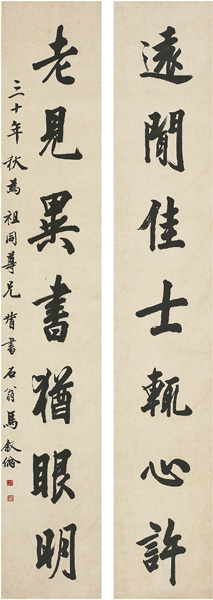 遠聞佳士輒心許
老見異書猶眼明
三十年秋為祖同尊兄背書石翁馬叙倫